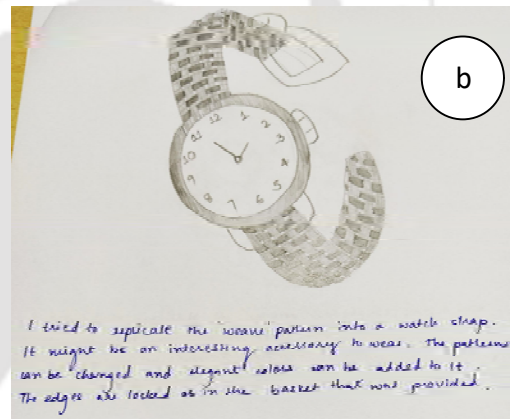 b
12
1
2
3
4
5
6
7
8
9
10
11
I tried to replicate the weave pattern into a watch strap.
It might be an interesting accessory to wear. The patterns
can be changed and elegant colors can be added to it.
The edges are locked as in the basket that was provided.